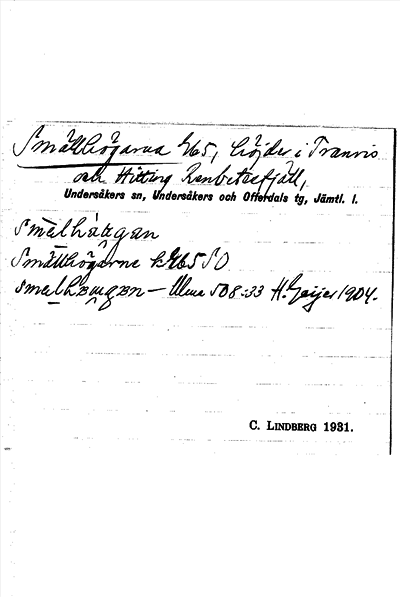 Smällhögarna k65, höjder i Tranris
och Hitting renbetesfjäll,
Undersåkers sn, Undersåkers och Offerdals tg, Jämtl. l.
smälhåagan
Smällhögarne k65 SO
smalhaugan — Ulma 508:33 H. Geijer 1904.
C. LINDBERG 1931.